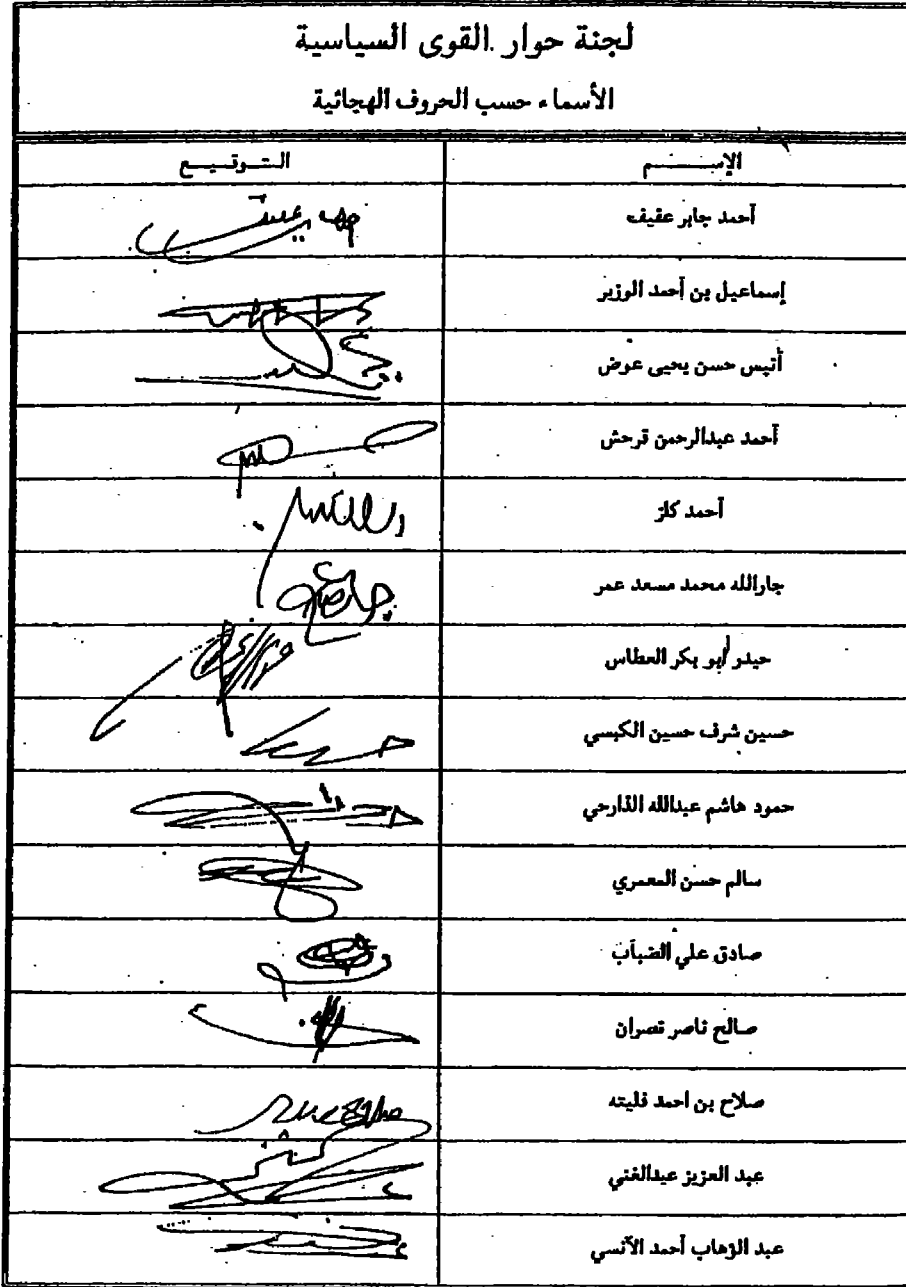 لجنة حوار القوى السياسية
الأسماء حسب الحروف الهجائية
الإســـم التـوقـيـع
أحمد جابر عفيف
إسماعيل بن أحمد الوزير
أنيس حسن يحيى عوض
أحمد عبدالرحمن قرحش
أحمد كلز
جارالله محمد مسعد عمر
حيدر أبو بكر العطاس
حسين شرف حسين الكبسي
حمود هاشم عبدالله الذارحي
سالم حسن المعمري
صادق علي الضباب
صالح ناصر نصران
صلاح بن احمد فليته
عبد العزيز عبدالغني
عبد الوهاب أحمد الآنسي